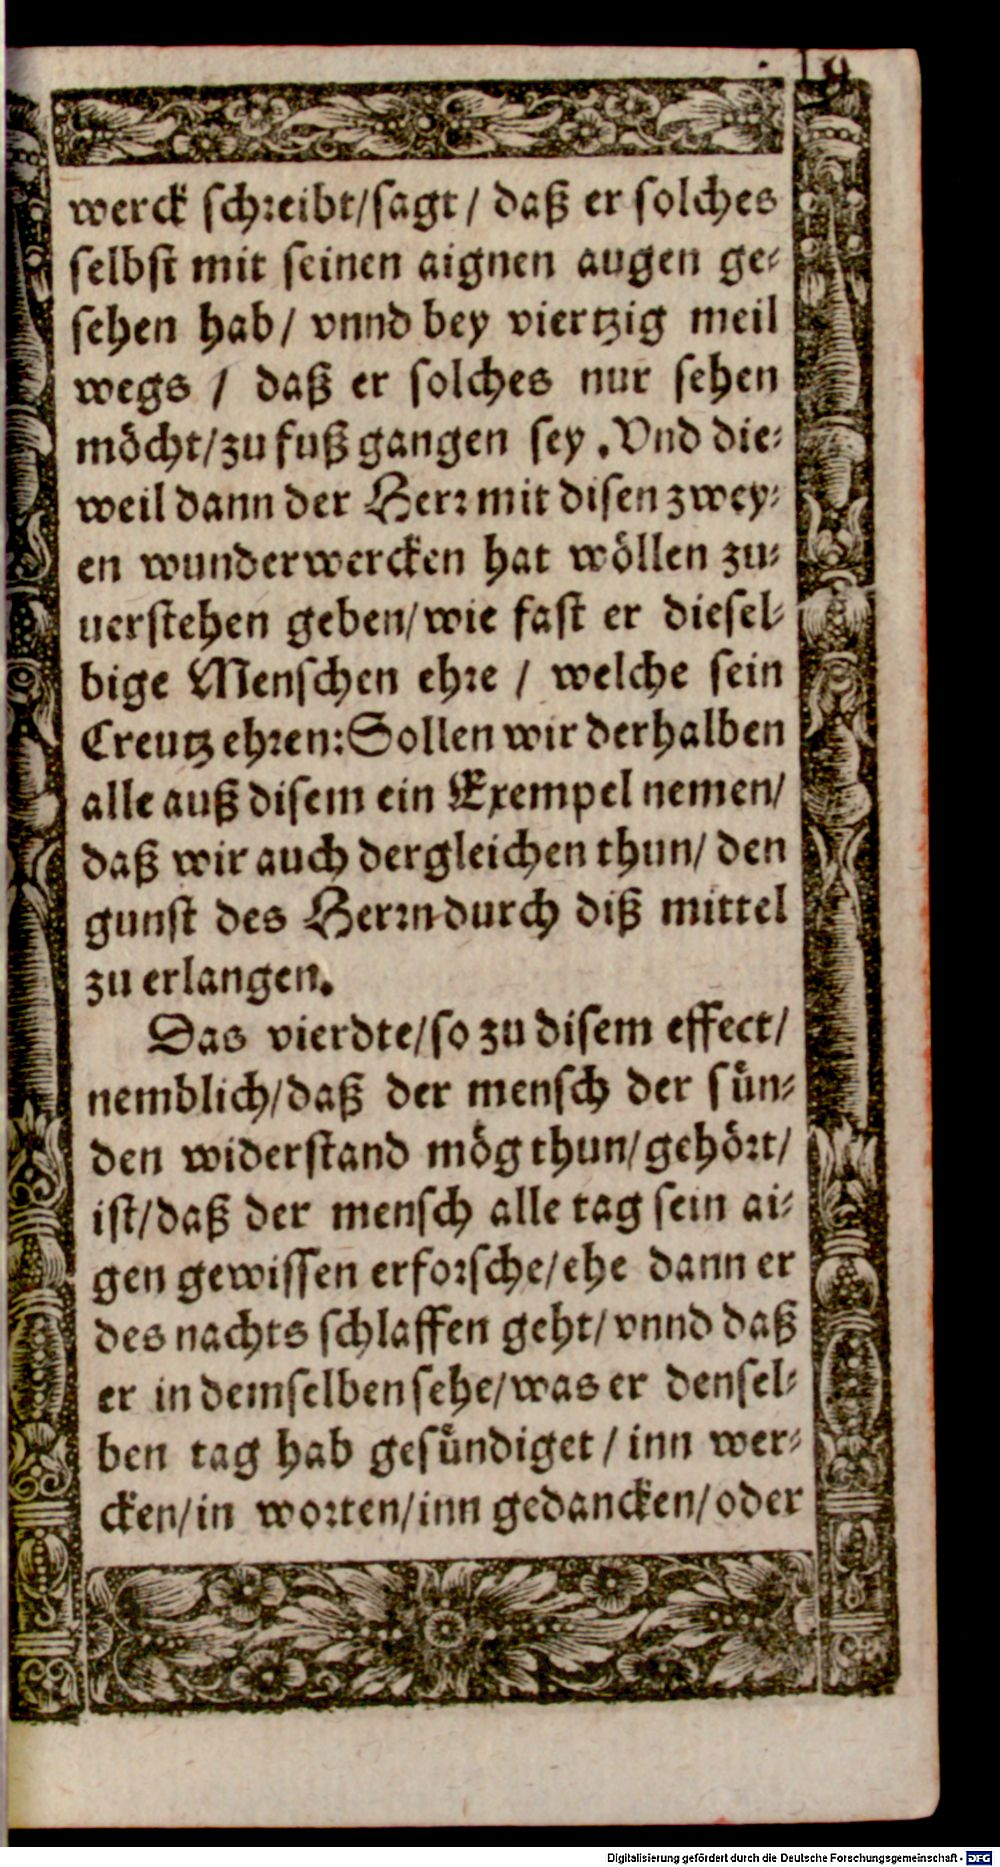 19
werck schreibt/sagt/ daß er solches
selbst mit seinen aignen augen ge-
sehen hab/ vnnd bey viertzig meil
wegs / daß er solches nur sehen
möcht/zu fuß gangen sey. Vnd die-
weil dann der Herr mit disen zwey-
en wunderwercken hat wöllen zu-
uerstehen geben/wie fast er diesel-
bige Menschen ehre / welche sein
Creutz ehren: Sollen wir derhalben
alle auß disem ein Exempel nemen/
daß wir auch dergleichen thun/ den
gunst des Herrn durch diß mittel
zu erlangen.
Das vierdte/so zu disem effect/
nemblich/daß der mensch der sün-
den widerstand mög thun/gehört/
ist/daß der mensch alle tag sein ai-
gen gewissen erforsche/ehe dann er
des nachts schlaffen geht/vnnd daß
er in demselben sehe/was er densel-
ben tag hab gesündiget / inn wer-
cken/in worten/inn gedancken/oder
Digitalisierung gefördert durch die Deutsche Forschungsgemeinschaft - DFG